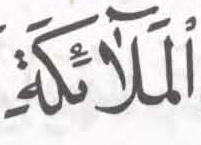 ٱلْمَلَٰٓئِكَةِ